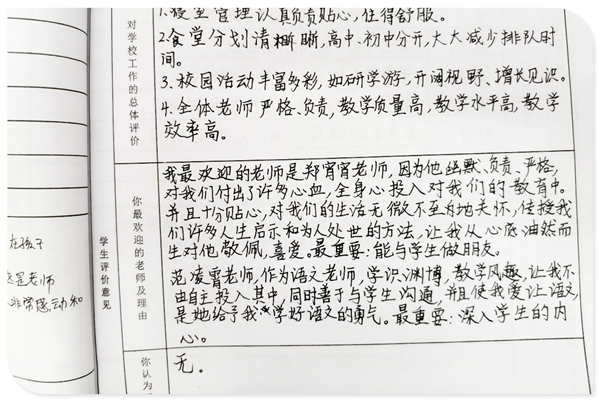 对学校工作的总体评价
1.寝室管理认真负责贴心,住得舒服。
2.食堂分划清晰,高中、初中分开,大大减少排队时
间。
3.校园活动丰富多彩,如研学游,开阔视野、增长见识。
4.全体老师严格、负责,教学质量高,教学水平高,教学
效率高。
学生评价意见
你最欢迎的老师及理由
我最欢迎的老师是郑宵宵老师,因为他幽默、负责、严格,
对我们付出了许多心血,全身心投入对我们的教育中。
并且十分贴心,对我们的生活无微不至的关怀,传授我
们许多人生启示和为人处世的方法,让我从心底油然而
生对他敬佩,喜爱。最重要:能与学生做朋友。
范凌霄老师,作为语文老师,学识渊博,教学风趣,让我不
由自主投入其中,同时善于与学生沟通,并且使我爱让语文,
是她给了我学好语文的勇气。最重要:深入学生的内
心。
你认为
无。
在孩子
这是老师
非常感动和